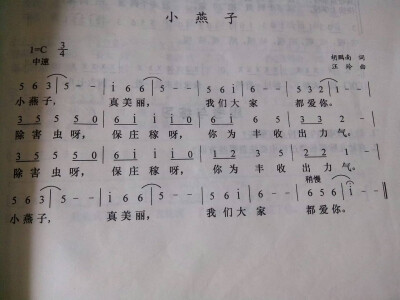 小燕子
1=C 3/4
中速
胡鹏南 词
汪玲 曲
5 6 3 | 5 - - | i 6 6 | 5 - - | 5 6 i | 6 - - | 5 3 2 | i - - |
小燕子， 真美丽， 我们大家 都爱你。
3 5 5 5 5 0 | 6 i i i i 0 | 6 i 6 5 | 3 3 2 - |
除害虫呀， 保庄稼呀， 你为丰收 出力气。
3 5 5 5 5 0 | 6 i i i i 0 | 1 2 3 5 | 2 2 1 - |
除害虫呀， 保庄稼呀， 你为丰收 出力气。
稍慢
5 6 3 | 5 - - | i 6 6 | 5 - - | 5 6 i | 6 - - | 6 5 6 | i - - ‖
小燕子， 真美丽， 我们大家 都爱你。